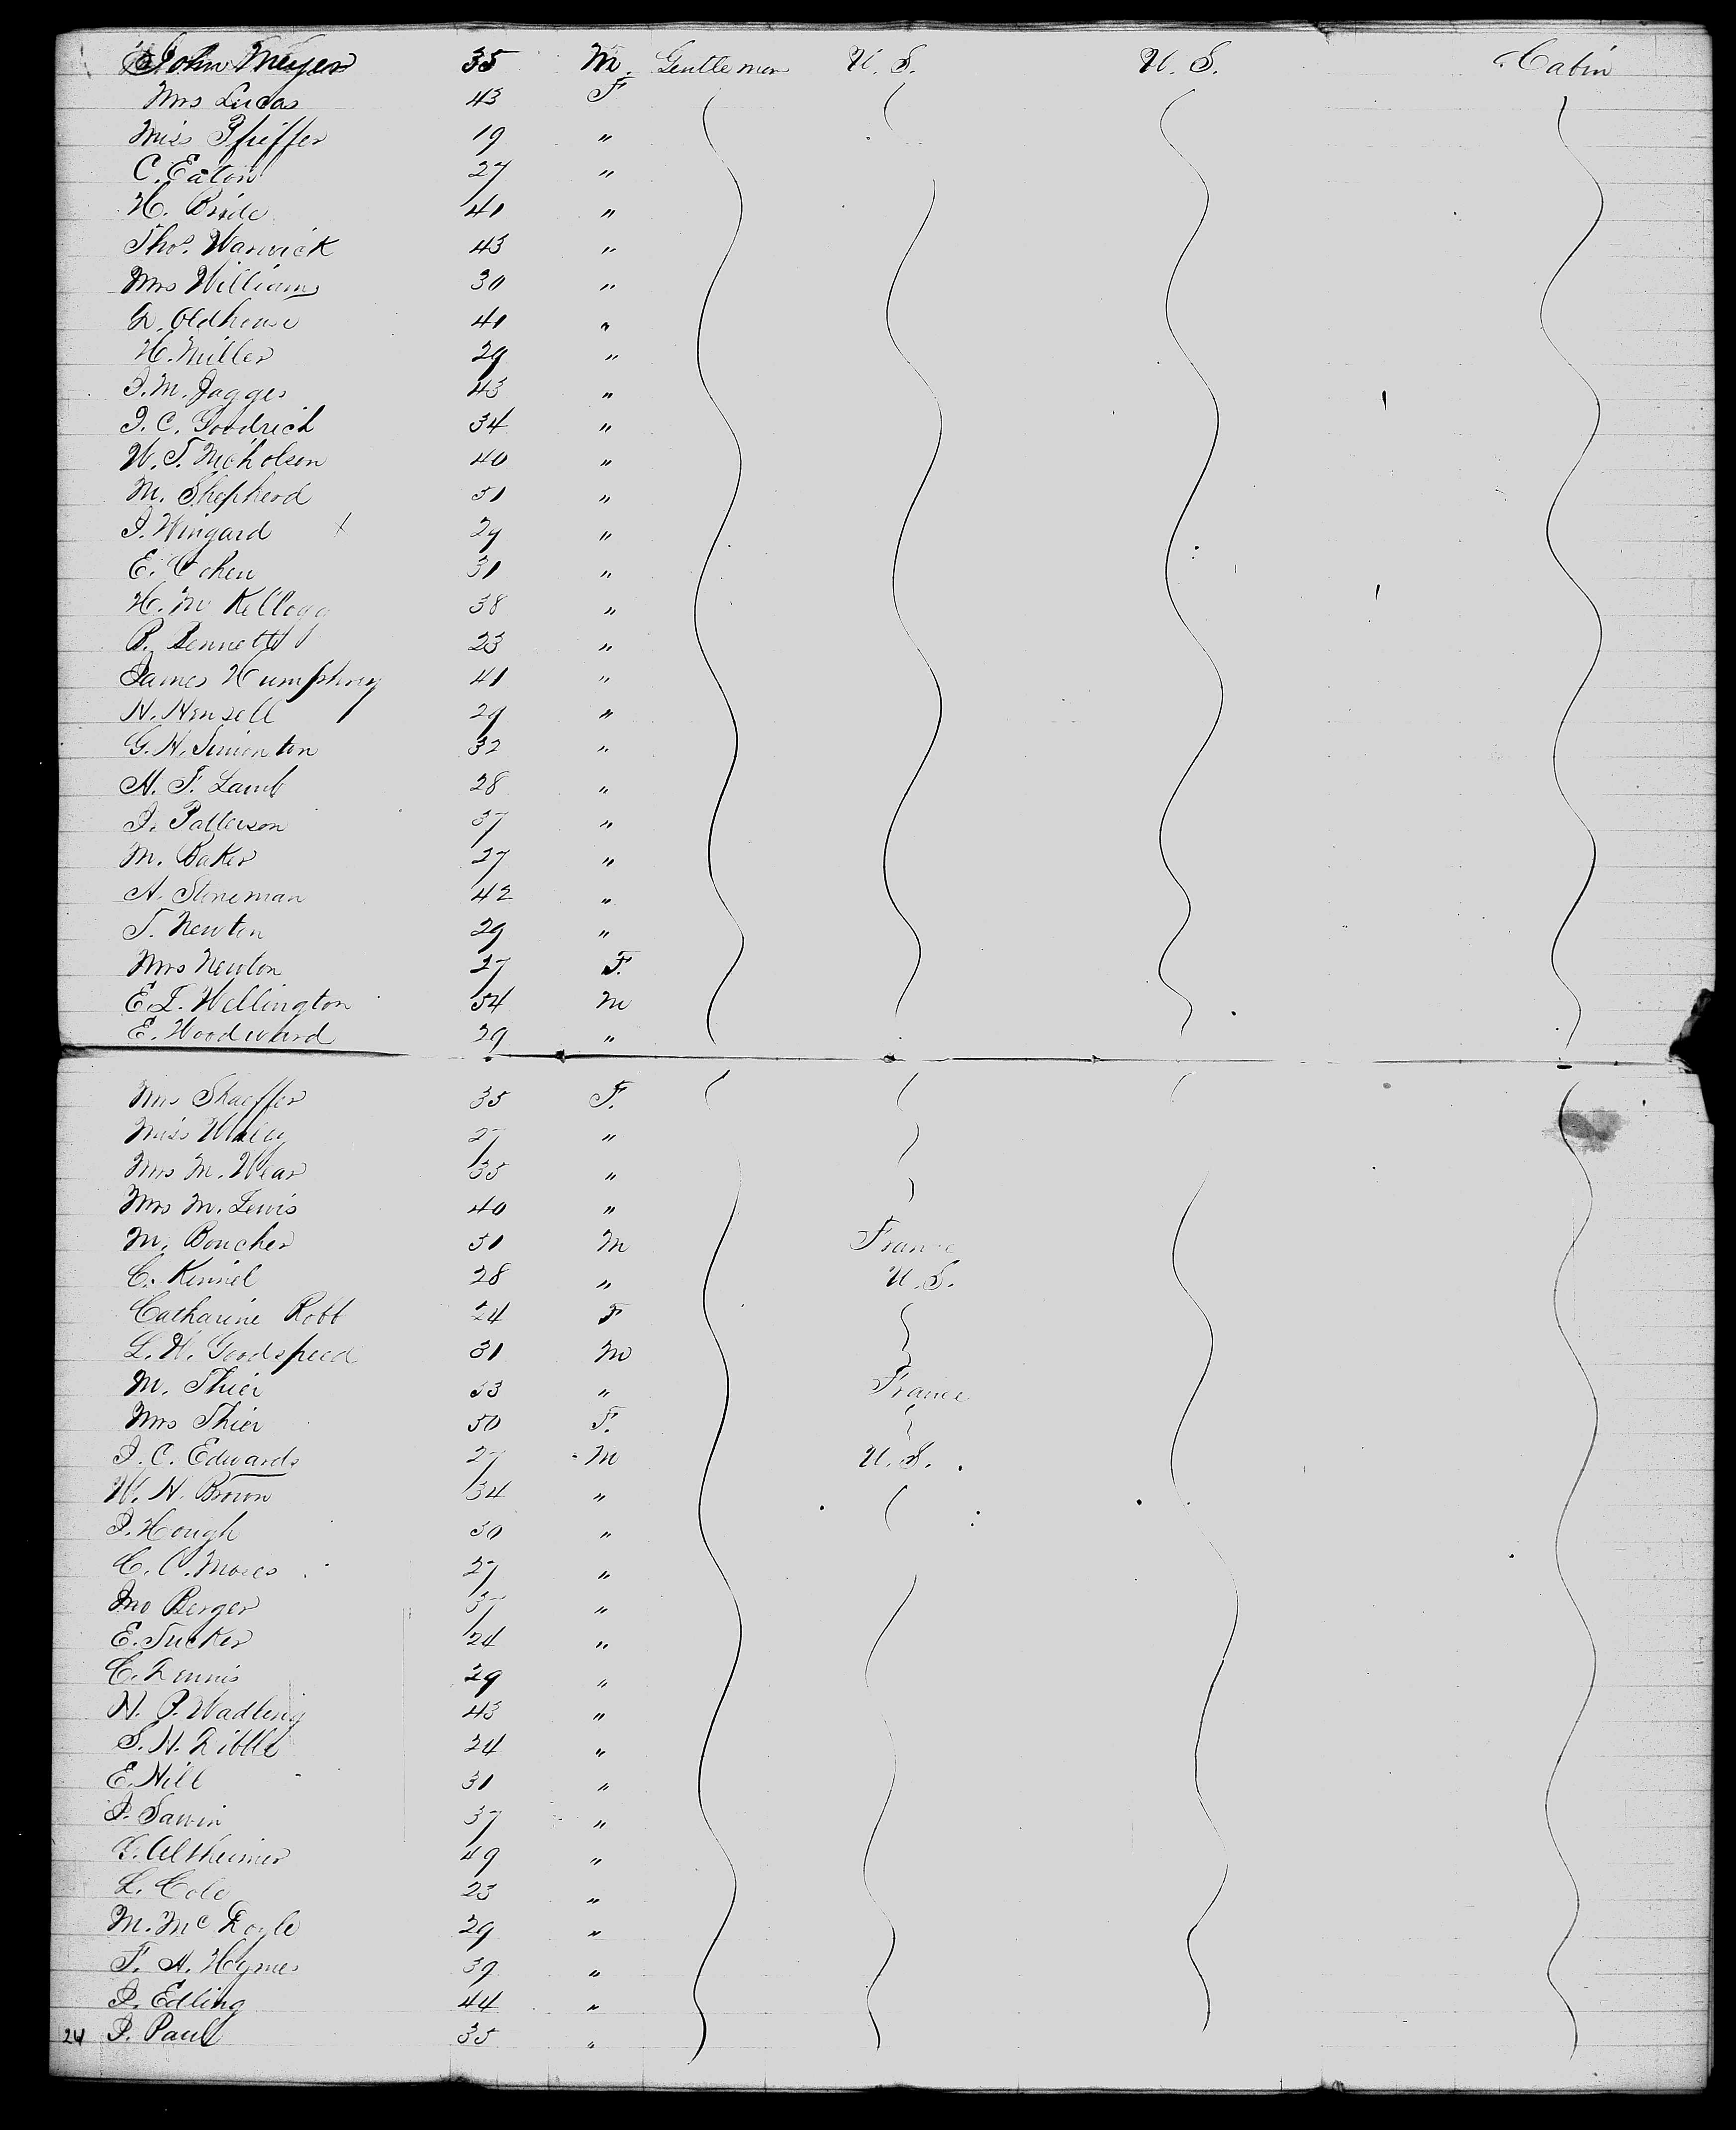 John Meyer 35 M. Gentlemen U. S. U. S. Cabin
Mrs Lucas 43 F
Miss Pfeiffer 19 "
C. Eaton 27 "
H. Bride 41 "
Thos. Warwick 43 "
Mrs Williams 30 "
D. Oldhouse 41 "
H. Miller 29 "
J. M. Jagger 43 "
J. C. Goodrich 34 "
W. T. Nicholson 40 "
M. Shepherd 51 "
J. Wingard 29 "
E. Cohen 31 "
H. M Kellogg 38 "
B. Bennett 23 "
James Humphrey 41 "
N. Hensell 29 "
G. H. Simonton 32 "
H. F. Lamb 28 "
J. Patterson 37 "
M. Baker 27 "
A. Stoneman 42 "
T. Newton 29 "
Mrs Newton 27 F.
E. L. Wellington 54 M
E. Woodward 29 "
Mrs Shaeffer 35 F.
Miss Waley 27 "
Mrs M. Wear 35 "
Mrs M. Lewis 40 "
M. Boucher 51 M France
C. Kennel 28 " U. S.
Catharine Robb 24 F
L. W. Goodspeed 31 M
M. Thier 53 " France
Mrs Thier 50 F.
J. C. Edwards 27 M U. S.
W. H. Brown 34 "
J. Hough 30 "
C. C. Moses 27 "
Mo Berger 37 "
E. Tucker 24 "
C. Dennis 29 "
H. P. Wadling 43 "
S. H. Dibble 24 "
E. Hill 31 "
J. Sawin 37 "
G. Altheimer 49 "
L. Cole 23 "
M. McDoyle 29 "
F. A. Hymes 39 "
J. Edling 44 "
24 J. Paull 35 "